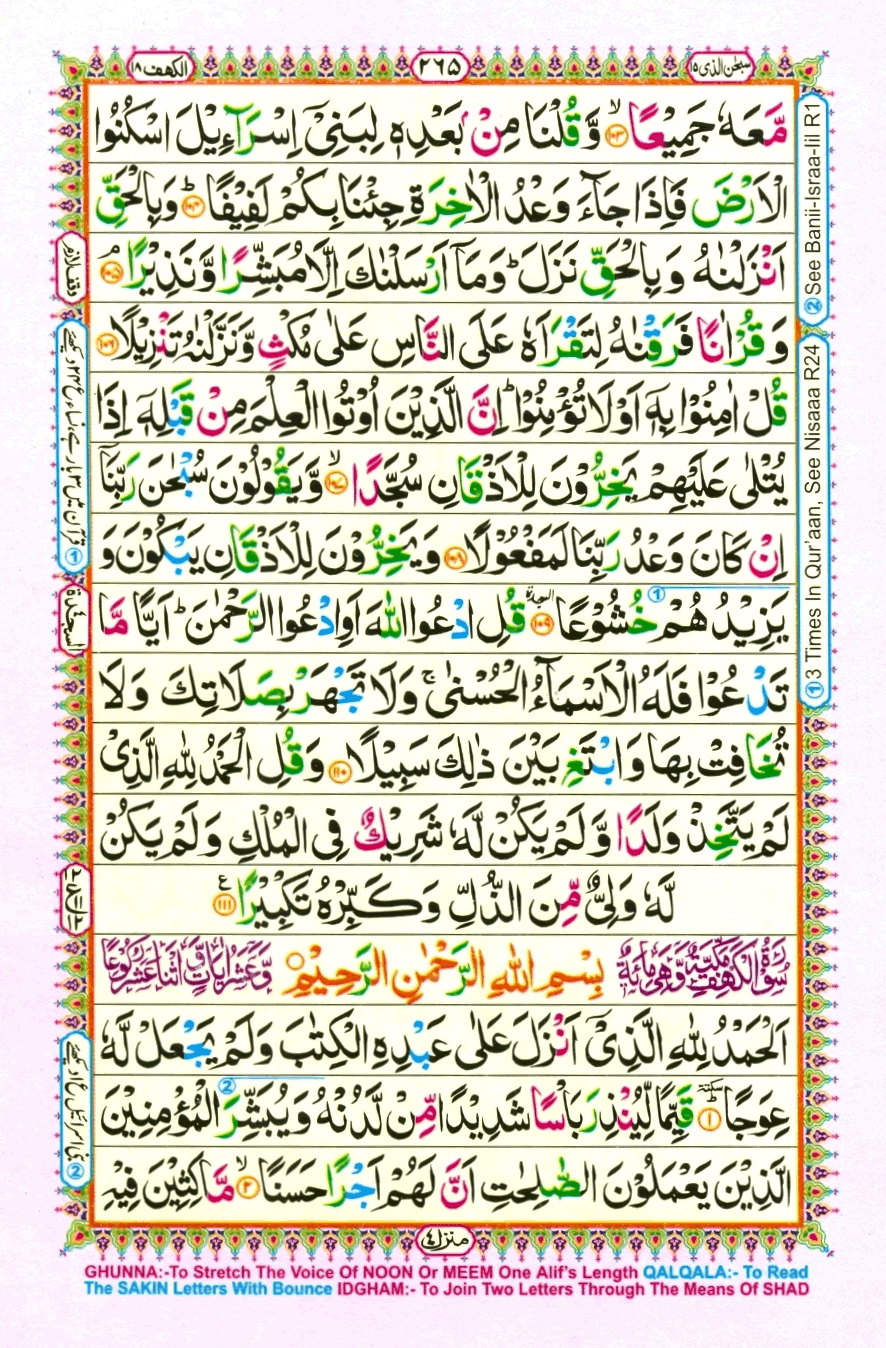 الكهف ۱۸
۲۶۵
سبحٰن الذی ۱۵
مَّعَهٗ جَمِیْعًا ۙ﴿۱۰۳﴾ وَّ قُلْنَا مِنْۢ بَعْدِهٖ لِبَنِیْۤ اِسْرَآءِیْلَ اسْكُنُوا
الْاَرْضَ فَاِذَا جَآءَ وَعْدُ الْاٰخِرَةِ جِئْنَا بِكُمْ لَفِیْفًا ؕ﴿۱۰۴﴾ وَ بِالْحَقِّ
اَنْزَلْنٰهُ وَ بِالْحَقِّ نَزَلَ ؕ وَ مَاۤ اَرْسَلْنٰكَ اِلَّا مُبَشِّرًا وَّ نَذِیْرًا ۘ﴿۱۰۵﴾
وَ قُرْاٰنًا فَرَقْنٰهُ لِتَقْرَاَهٗ عَلَی النَّاسِ عَلٰی مُكْثٍ وَّ نَزَّلْنٰهُ تَنْزِیْلًا ﴿۱۰۶﴾
قُلْ اٰمِنُوْا بِهٖۤ اَوْ لَا تُؤْمِنُوْا ؕ اِنَّ الَّذِیْنَ اُوْتُوا الْعِلْمَ مِنْ قَبْلِهٖۤ اِذَا
یُتْلٰی عَلَیْهِمْ یَخِرُّوْنَ لِلْاَذْقَانِ سُجَّدًا ۙ﴿۱۰۷﴾ وَّ یَقُوْلُوْنَ سُبْحٰنَ رَبِّنَاۤ
اِنْ كَانَ وَعْدُ رَبِّنَا لَمَفْعُوْلًا ﴿۱۰۸﴾ وَ یَخِرُّوْنَ لِلْاَذْقَانِ یَبْكُوْنَ وَ
یَزِیْدُهُمْ خُشُوْعًا ﴿۱۰۹﴾ السجدة قُلِ ادْعُوا اللّٰهَ اَوِ ادْعُوا الرَّحْمٰنَ ؕ اَیًّا مَّا
تَدْعُوْا فَلَهُ الْاَسْمَآءُ الْحُسْنٰی ۚ وَ لَا تَجْهَرْ بِصَلَاتِكَ وَ لَا
تُخَافِتْ بِهَا وَ ابْتَغِ بَیْنَ ذٰلِكَ سَبِیْلًا ﴿۱۱۰﴾ وَ قُلِ الْحَمْدُ لِلّٰهِ الَّذِیْ
لَمْ یَتَّخِذْ وَلَدًا وَّ لَمْ یَكُنْ لَّهٗ شَرِیْكٌ فِی الْمُلْكِ وَ لَمْ یَكُنْ
لَّهٗ وَلِیٌّ مِّنَ الذُّلِّ وَ كَبِّرْهُ تَكْبِیْرًا ﴿۱۱۱﴾ ع
سُوْرَةُ الْكَهْفِ مَكِّیَّةٌ وَّ هِیَ مِائَةٌ بِسْمِ اللّٰهِ الرَّحْمٰنِ الرَّحِیْمِ ۝ وَّ عَشْرُ اٰیَاتٍ وَّ اثْنَا عَشَرَ رُكُوْعًا
اَلْحَمْدُ لِلّٰهِ الَّذِیْۤ اَنْزَلَ عَلٰی عَبْدِهِ الْكِتٰبَ وَ لَمْ یَجْعَلْ لَّهٗ
عِوَجًا ؕ﴿۱﴾ سكتة قَیِّمًا لِّیُنْذِرَ بَاْسًا شَدِیْدًا مِّنْ لَّدُنْهُ وَ یُبَشِّرَ الْمُؤْمِنِیْنَ
الَّذِیْنَ یَعْمَلُوْنَ الصّٰلِحٰتِ اَنَّ لَهُمْ اَجْرًا حَسَنًا ۙ﴿۲﴾ مَّاكِثِیْنَ فِیْهِ
② See Banii-Israa-Iil R1
① 3 Times In Qur'aan, See Nisaaa R24
وقف لازم
السجدة ٤
منزل ٤
GHUNNA:-To Stretch The Voice Of NOON Or MEEM One Alif's Length QALQALA:- To Read
The SAKIN Letters With Bounce IDGHAM:- To Join Two Letters Through The Means Of SHAD